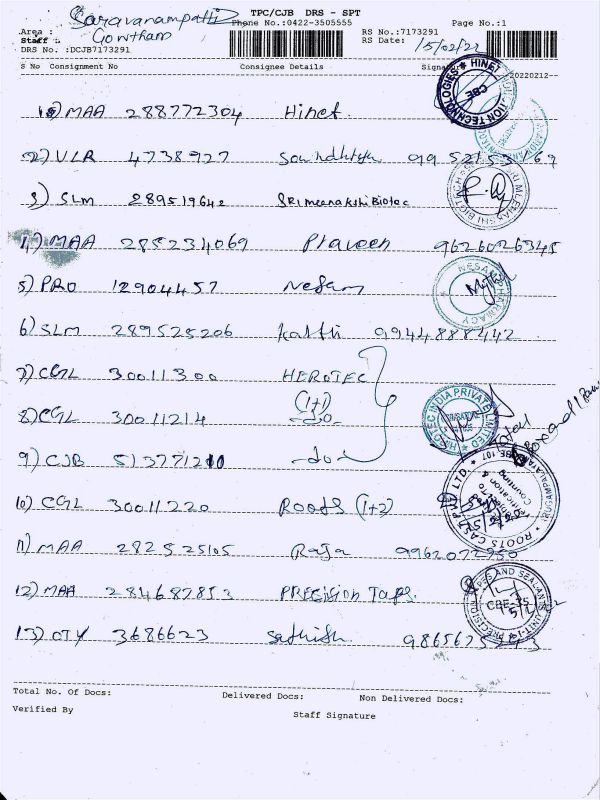 Saravanampatti TPC/CJB DRS - SPT
Gowtham Phone No.:0422-3505555 Page No.:1
Area : RS No.:7173291
Staff : RS Date: 15/02/22
DRS No. :DCJB7173291
S No Consignment No Consignee Details Signature 20220212
1) MAA 288772304 Hinet
2) VLR 4738927
3) SLM 289519642 SRI meenakshi Biotec
4) MAA 285234069 Praveen 9626026345
5) PRO 12904457 Nesam
6) SLM 289525206 9944888442
7) CGL 30011300 HEROTEC
(1+1)
8) CGL 30011214 -do-
9) CJB 513771210 -do-
10) CGL 30011220 Roots (1+2)
11) MAA 282525105 Raja
12) MAA 284687853 PRECISION Taps.
13) OTY 3686623 Sathish
HINET
TECHNOLOGIES
CBE
NESAM PHARMACY
TEC INDIA PRIVATE LIMITED
ROOTS CAST PVT LTD.
CBE-35
Total No. Of Docs: Delivered Docs: Non Delivered Docs:
Verified By Staff Signature